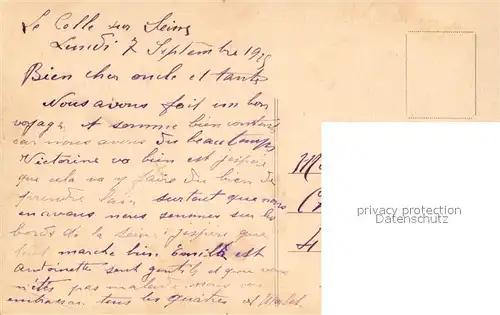 Le Celle sur Seine
Lundi 7 Septembre 19
Bien cher oncle et tante
Nous avons fait un bon
voyage. A somme bien content
car nous avons du beau temps
Victorine va bien est j'espère
que cela va y faire du bien de
prendre l'air surtout que nous
en avons nous sommes sur les
bords de la Seine j'espère que
tout marche bien Emille est
Antoinette sont gentils et que vous
n'êtes pas malade nous vous
embrassan tous les quatres
M
C
4
privacy protection
www.ansichtskarten-center.de